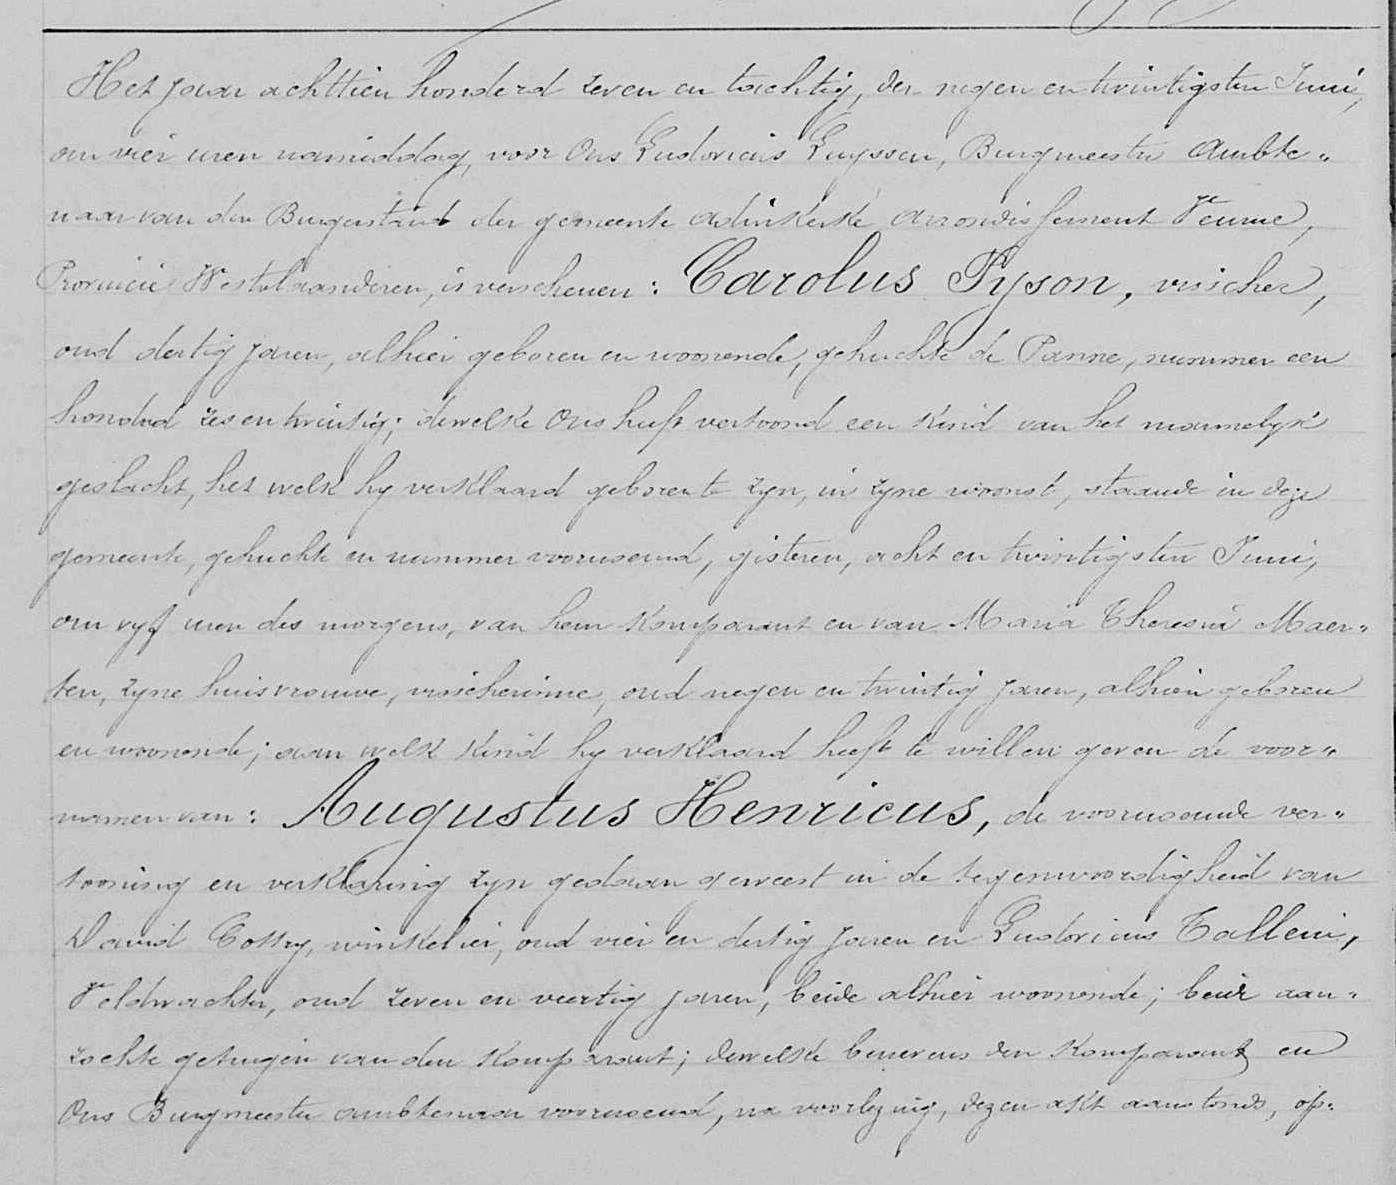 Het jaar achttien honderd zeven en tachtig, den negen en twintigsten Juni,
om vier uren namiddag, voor Ons Ludovicus Luyssen, Burgmeester Ambte-
naar van den Burgerstand der gemeente Adinkerke arrondissement Veurne,
Provincie Westvlaanderen, is verschenen: Carolus Tyson, visscher,
oud dertig jaren, alhier geboren en woonende, gehuchte de Panne, nummer een
honderd zes en twintig; dewelke Ons heeft vertoond een kind van het mannelyk
geslacht, het welk hy verklaard geboren te zyn, in zyne woonst, staande in deze
gemeente, gehuchte en nummer voornoemd, gisteren, acht en twintigsten Juni,
om vyf uren des morgens, van hem Komparant en van Maria Theresia Maer-
ten, zyne huisvrouwe, visscherinne, oud negen en twintig jaren, alhier geboren
en woonende; aan welk kind hy verklaard heeft te willen geven de voor-
namen van: Augustus Henricus, de voornoemde ver-
tooning en verklaring zyn gedaan geweest in de tegenwoordigheid van
David Cossey, winkelier, oud vier en dertig jaren en Ludovicus Tallein,
Veldwachter, oud zeven en veertig jaren, beide alhier woonende; beide aan-
zochte getuigen van den Komparant; dewelke benevens den Komparant en
Ons Burgmeester ambtenaar voornoemd, na voorlezing, dezen akt aanstonds, op-